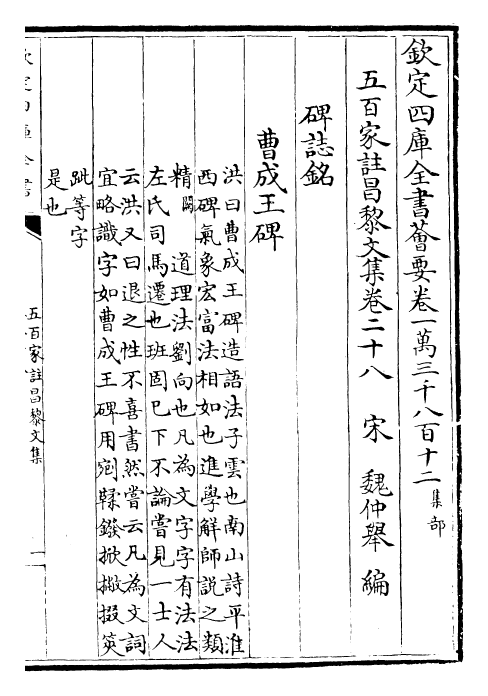 欽定四庫全書薈要卷一萬三千八百十二 集部
五百家註昌黎文集卷二十八 宋 魏仲舉 編
碑誌銘
曹成王碑
洪曰曹成王碑造語法子雲也南山詩平淮
西碑氣象宏富法相如也進學解師說之類
精闕 道理法劉向也凡為文字字有法法
左氏司馬遷也班固巳下不論嘗見一士人
云洪又曰退之性不喜書然嘗云凡為文詞
宜略識字如曹成王碑用剜鞣鏺掀撇掇筴
跐等字
是也
欽定四庫全書
五百家註昌黎文集
一